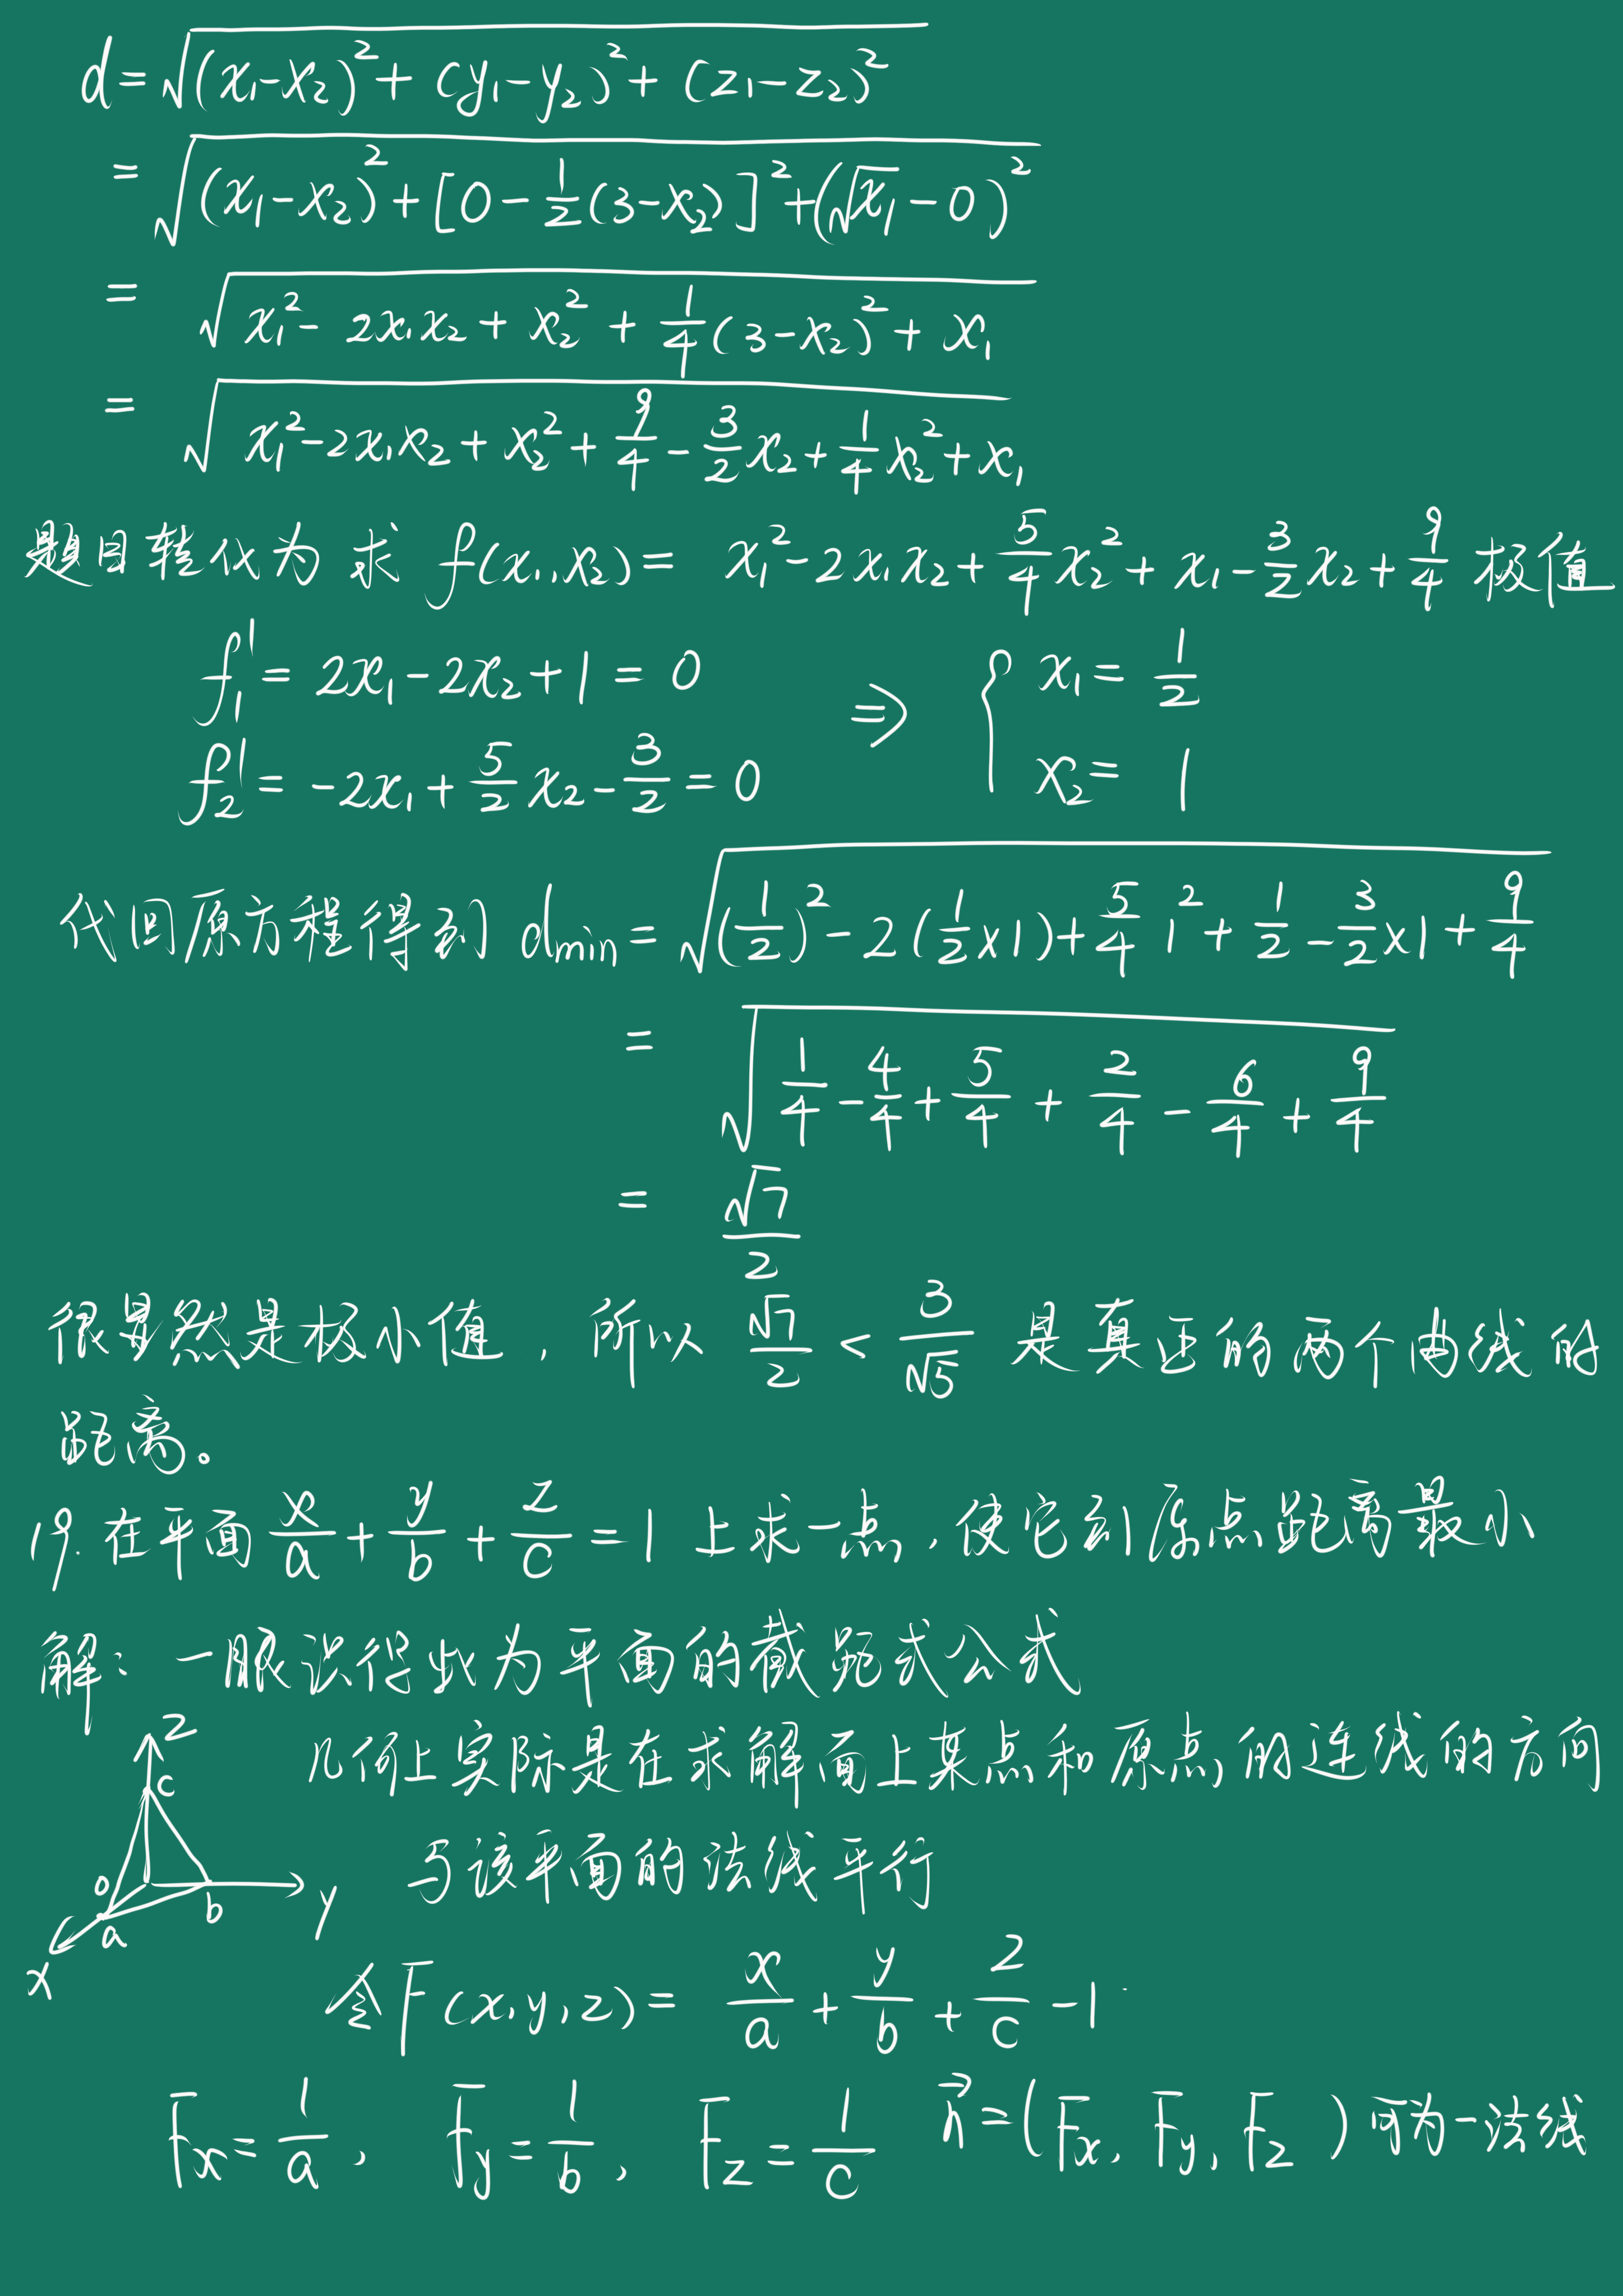 d = √((x₁-x₂)² + (y₁-y₂)² + (z₁-z₂)²)
= √((x₁-x₂)² + [0 - 1/2(3-x₂)]² + (√x₁ - 0)²)
= √(x₁² - 2x₁x₂ + x₂² + 1/4(3-x₂)² + x₁)
= √(x₁² - 2x₁x₂ + x₂² + 9/4 - 3/2 x₂ + 1/4 x₂² + x₁)
题目转化为 求 f(x₁,x₂) = x₁² - 2x₁x₂ + 5/4 x₂² + x₁ - 3/2 x₂ + 9/4 极值
f₁' = 2x₁ - 2x₂ + 1 = 0 ⇒ { x₁ = 1/2
f₂' = -2x₁ + 5/2 x₂ - 3/2 = 0 x₂ = 1
代回原方程得到 d_min = √((1/2)² - 2(1/2×1) + 5/4 1² + 1/2 - 3/2×1 + 9/4)
= √(1/4 - 4/4 + 5/4 + 2/4 - 6/4 + 9/4)
= √7/2
很显然是极小值，所以 √7/2 < 3/√5 是真正的两个曲线的
距离。
19. 在平面 x/a + y/b + z/c = 1 上求一点，使它到原点距离最小
解：一眼识得此为平面的截距式公式
几何上实际是在求解面上某点和原点的连线的方向
与该平面的法线平行
z
c
o
a
b
y
x
令 F(x,y,z) = x/a + y/b + z/c - 1
Fx = 1/a, Fy = 1/b, Fz = 1/c n⃗ = (Fx, Fy, Fz) 可为一法线